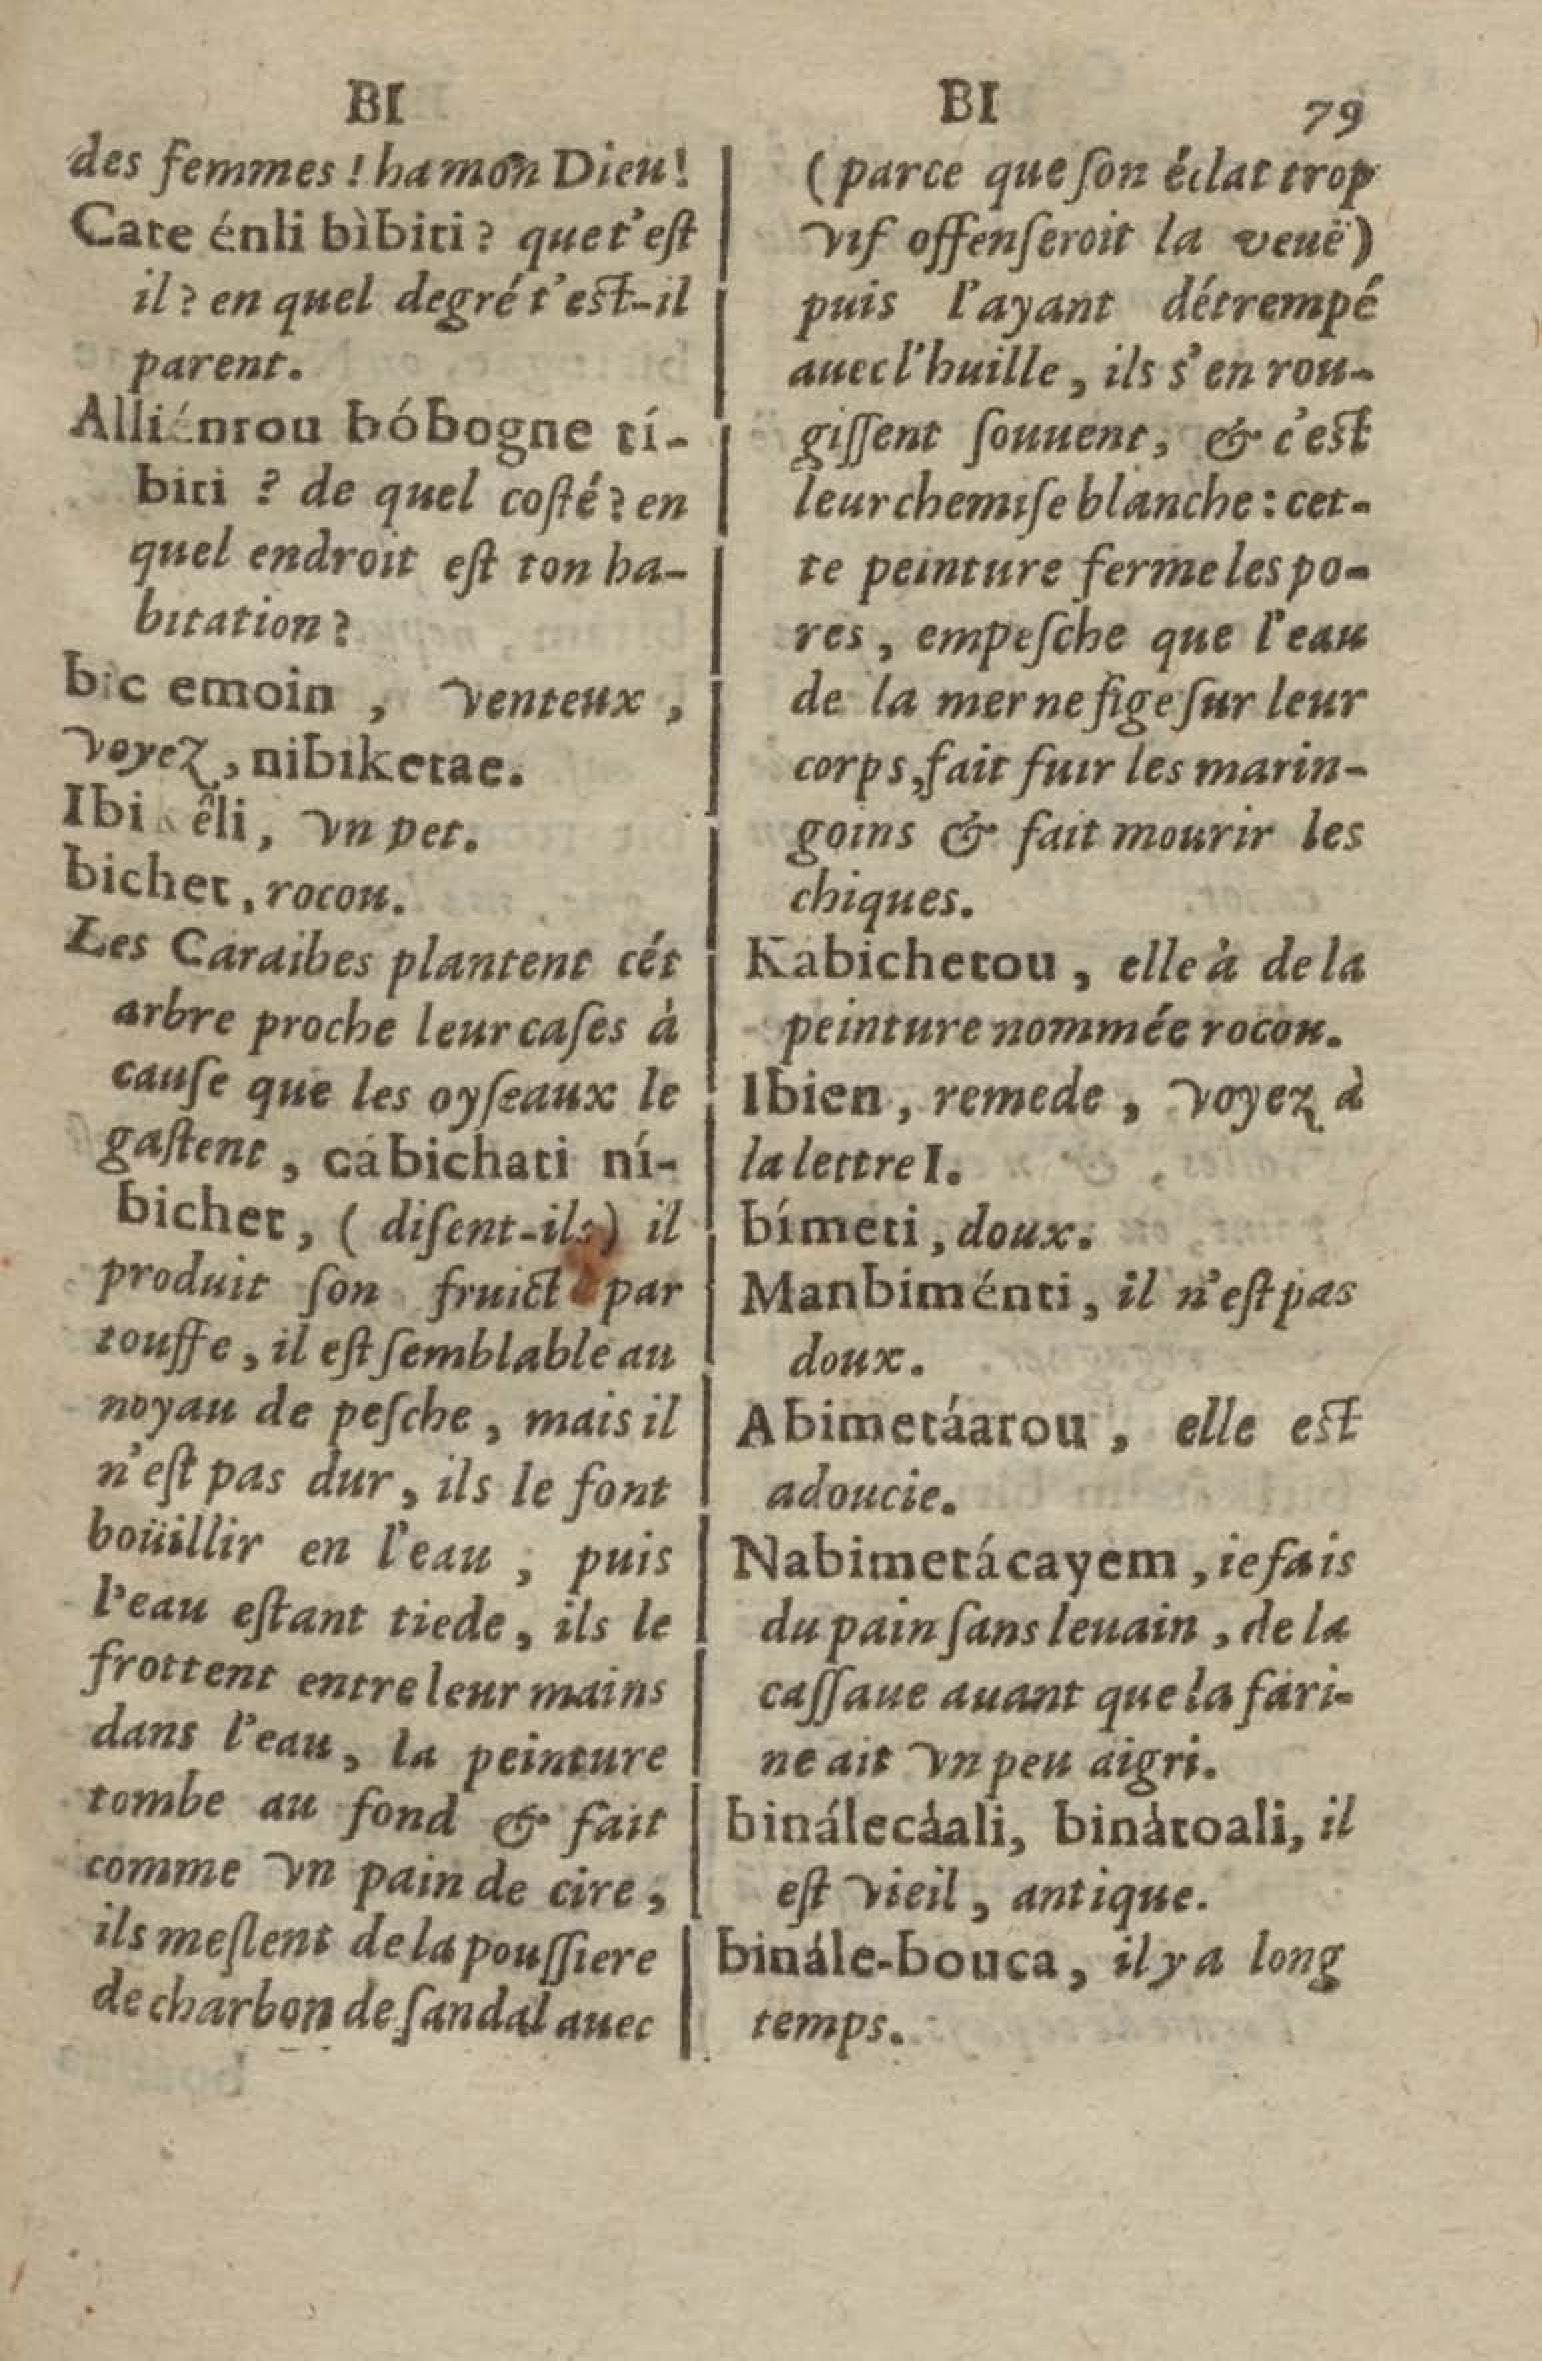 BI
des femmes ! ha mon Dieu !
Cate énli bìbiti ? que t'eſt
il ? en quel degré t'eſt-il
parent.
Alliénrou bóbogne tí-
biti ? de quel coſté ? en
quel endroit eſt ton ha-
bitation ?
bic emoin , venteux ,
voyez, nibiketae.
Ibi kêli, vn pet.
bichet, rocou.
Les Caraibes plantent cét
arbre proche leur caſes à
cauſe que les oyſeaux le
gaſtent , cábichati ní-
bichet, ( diſent-ils ) il
produit ſon fruict par
touffe, il eſt ſemblable au
noyau de peſche, mais il
n'eſt pas dur, ils le font
boüillir en l'eau ; puis
l'eau eſtant tiede, ils le
frottent entre leur mains
dans l'eau, la peinture
tombe au fond & fait
comme vn pain de cire,
ils meſlent de la pouſſiere
de charbon de ſandal auec
BI 79
( parce que ſon éclat trop
vif offenſeroit la veuë )
puis l'ayant détrempé
auec l'huille, ils s'en rou-
giſſent ſouuent, & c'eſt
leur chemiſe blanche : cet-
te peinture ferme les po-
res, empeſche que l'eau
de la mer ne fige ſur leur
corps, fait fuir les marin-
goins & fait mourir les
chiques.
Kabichetou, elle à de la
peinture nommée rocou.
Ibien, remede, voyez à
la lettre I.
bímeti, doux.
Manbiménti, il n'eſt pas
doux.
Abimetáatou, elle eſt
adoucie.
Nabimetácayem, ie fais
du pain ſans leuain, de la
caſſaue auant que la fari-
ne ait vn peu aigri.
binálecáali, binátoali, il
eſt vieil, antique.
binále-bouca, il y a long
temps.